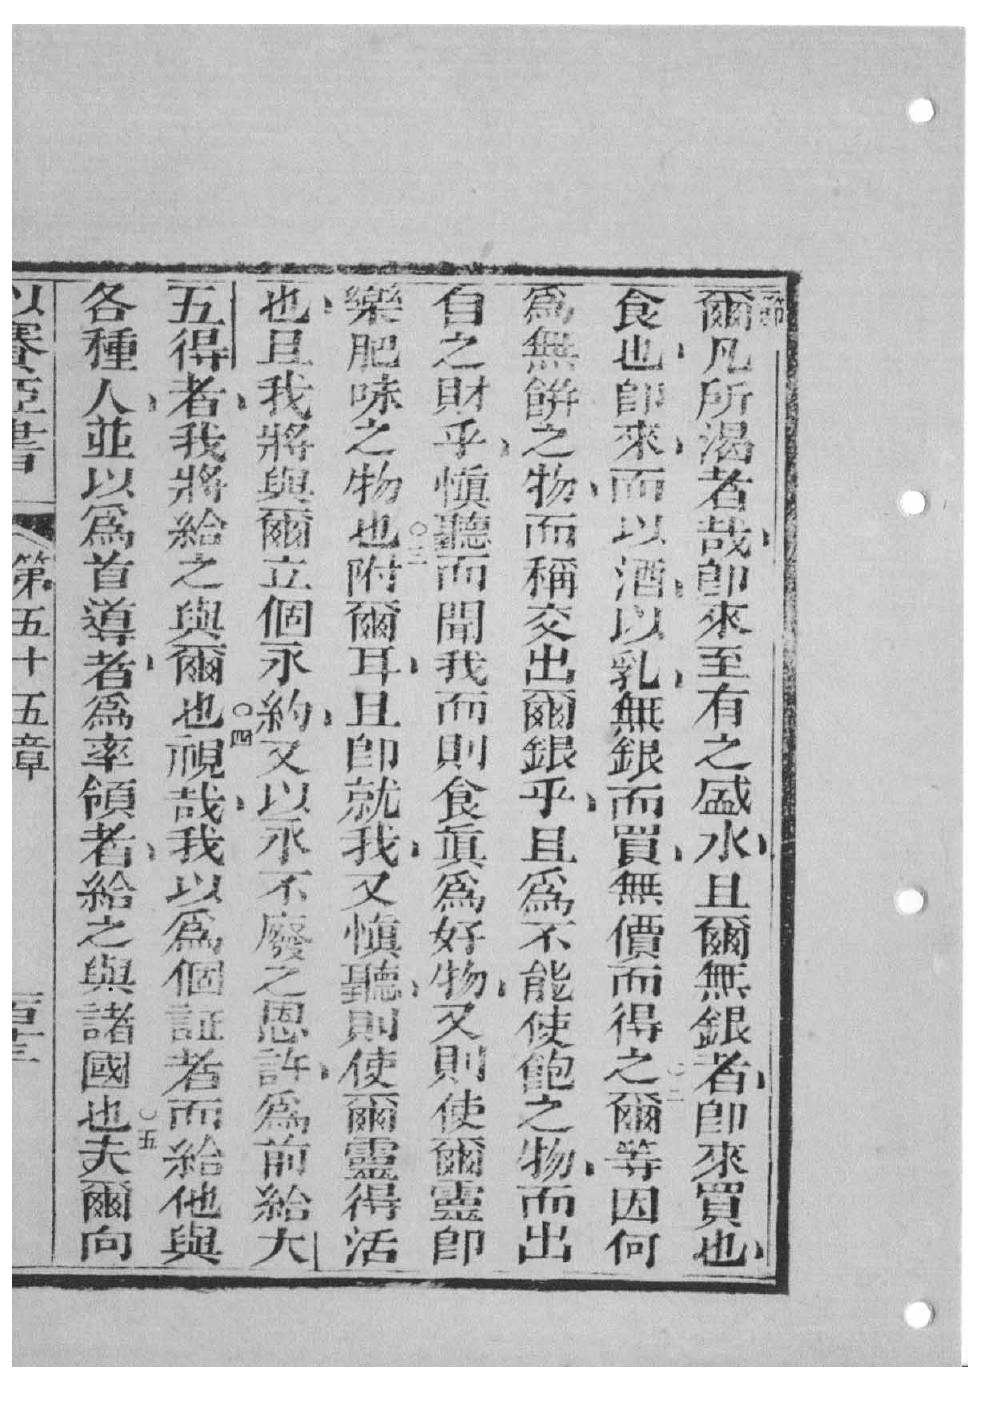 節
爾凡所渴者哉卽來至有之盛水且爾無銀者卽來買也
食也卽來而以酒以乳無銀而買無價而得之○二爾等因何
爲無餅之物而稱交出爾銀乎且爲不能使飽之物而出
自之財乎愼聽而聞我而則食眞爲好物又則使爾靈卽
樂肥味之物也○三附爾耳且卽就我又愼聽則使爾靈得活
也且我將與爾立個永約又以永不廢之恩許爲前給大
五得者我將給之與爾也○四視哉我以爲個証者而給他與
各種人並以爲首導者爲率領者給之與諸國也○五夫爾向
以賽亞書 第五十五章 百十三